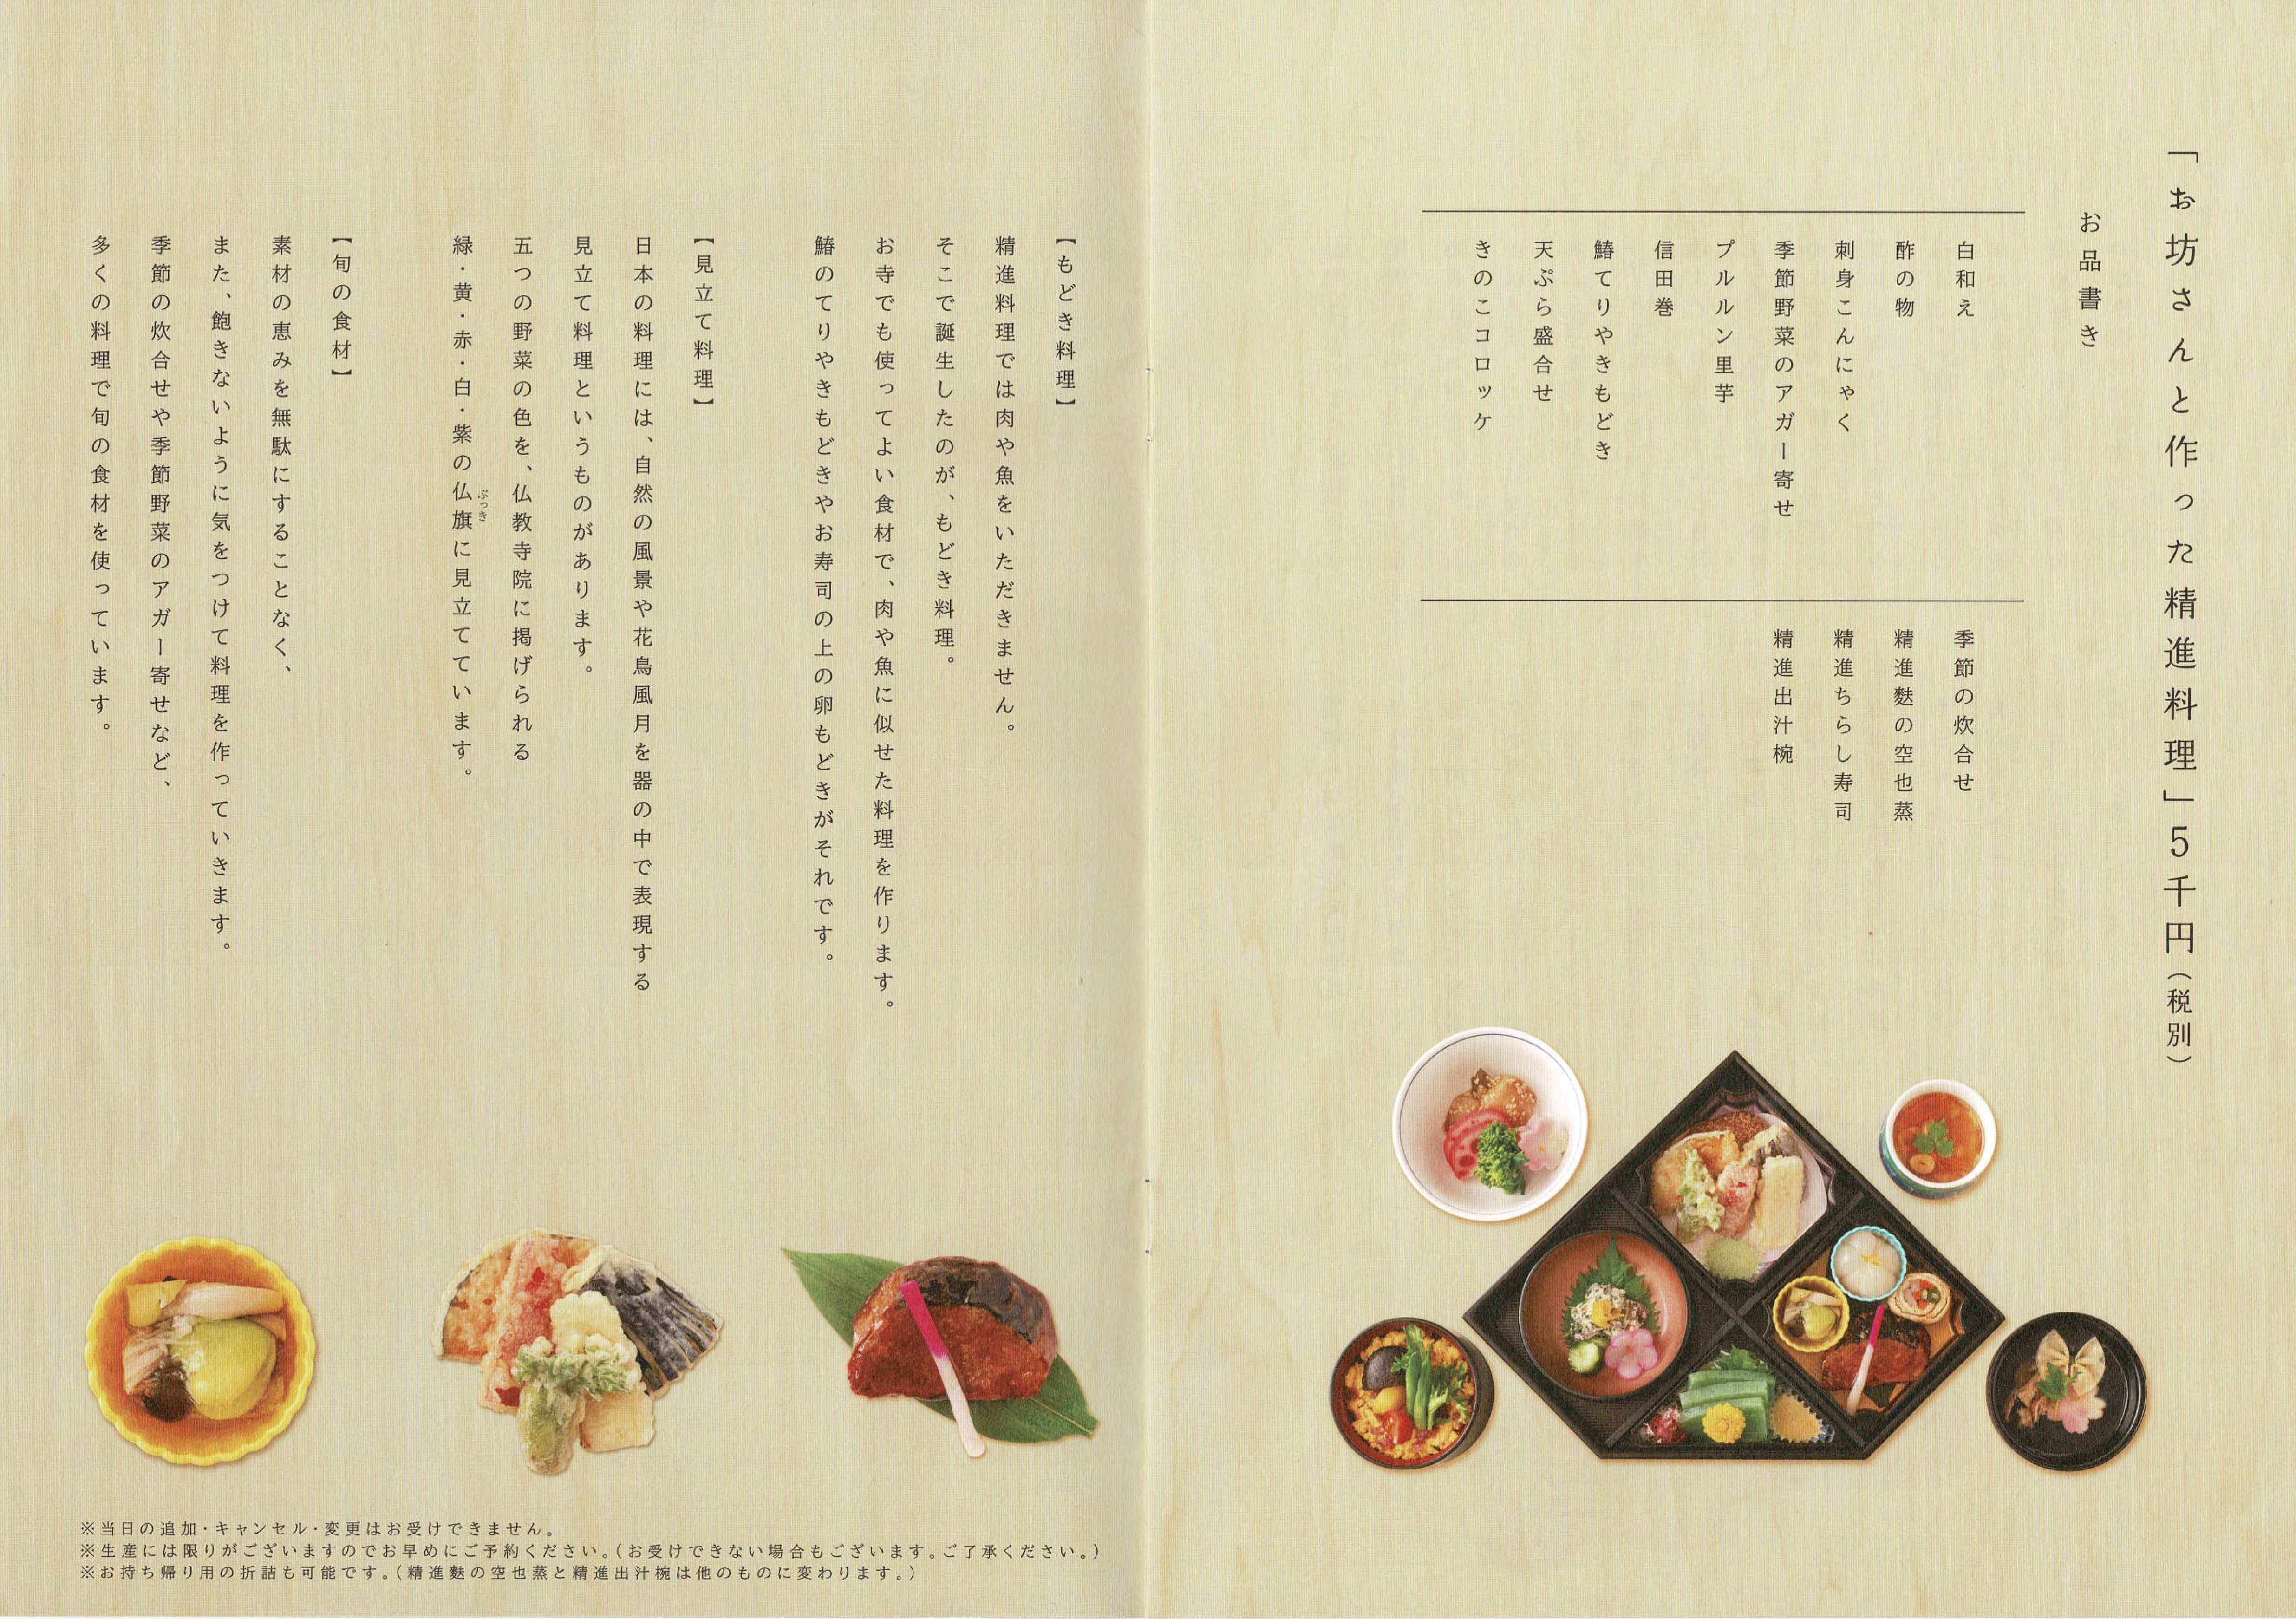 「お坊さんと作った精進料理」5千円（税別）
お品書き
白和え
酢の物
刺身こんにゃく
季節野菜のアガー寄せ
プルルン里芋
信田巻
鰆てりやきもどき
天ぷら盛合せ
きのこコロッケ
季節の炊合せ
精進麩の空也蒸
精進ちらし寿司
精進出汁椀
【もどき料理】
精進料理では肉や魚をいただきません。
そこで誕生したのが、もどき料理。
お寺でも使ってよい食材で、肉や魚に似せた料理を作ります。
鰆のてりやきもどきやお寿司の上の卵もどきがそれです。
【見立て料理】
日本の料理には、自然の風景や花鳥風月を器の中で表現する
見立て料理というものがあります。
五つの野菜の色を、仏教寺院に掲げられる
ぶっき
緑・黄・赤・白・紫の仏旗に見立てています。
【旬の食材】
素材の恵みを無駄にすることなく、
また、飽きないように気をつけて料理を作っていきます。
季節の炊合せや季節野菜のアガー寄せなど、
多くの料理で旬の食材を使っています。
※当日の追加・キャンセル・変更はお受けできません。
※生産には限りがございますのでお早めにご予約ください。（お受けできない場合もございます。ご了承ください。）
※お持ち帰り用の折詰も可能です。（精進麩の空也蒸と精進出汁椀は他のものに変わります。）